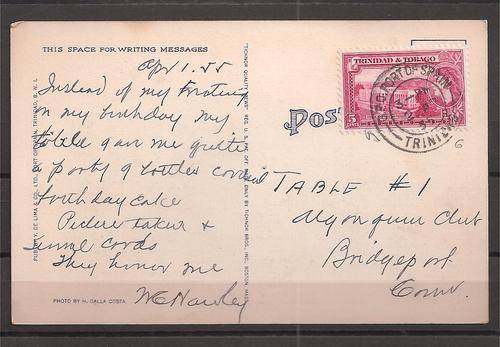 THIS SPACE FOR WRITING MESSAGES
Apr 1. 55
Instead of my
on my birthday my
table gave me quite
a party
birthday cake
Picture taken &
cards
They honor me
PHOTO BY H. DALLA COSTA
PUBL. BY, DE LIMA & CO., LTD., PORT OF SPAIN, TRINIDAD, B. W. I.
TICHNOR QUALITY VIEWS REG. U. S. PAT. OFF. MADE ONLY BY TICHNOR BROS., INC., BOSTON, MASS.
Pos
TRINIDAD & TOBAGO
5
G.P.O. PORT OF SPAIN
TRINIDAD
TABLE #1
Algonquin Club
Bridgeport
Conn.
6